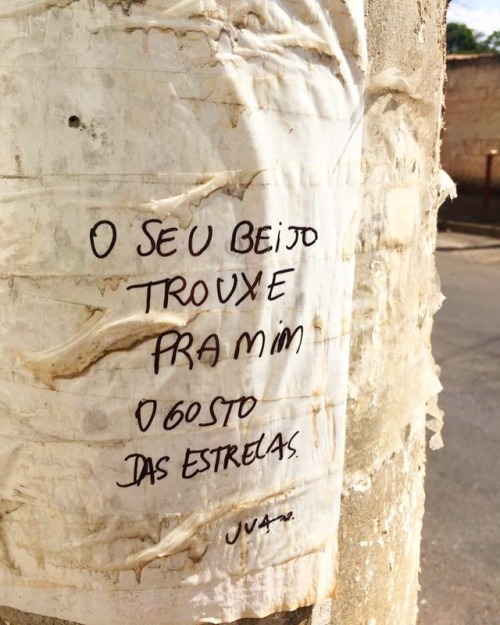 O SEU BEIJO
TROUXE
PRA MIM
O GOSTO
DAS ESTRELAS
JUAN.